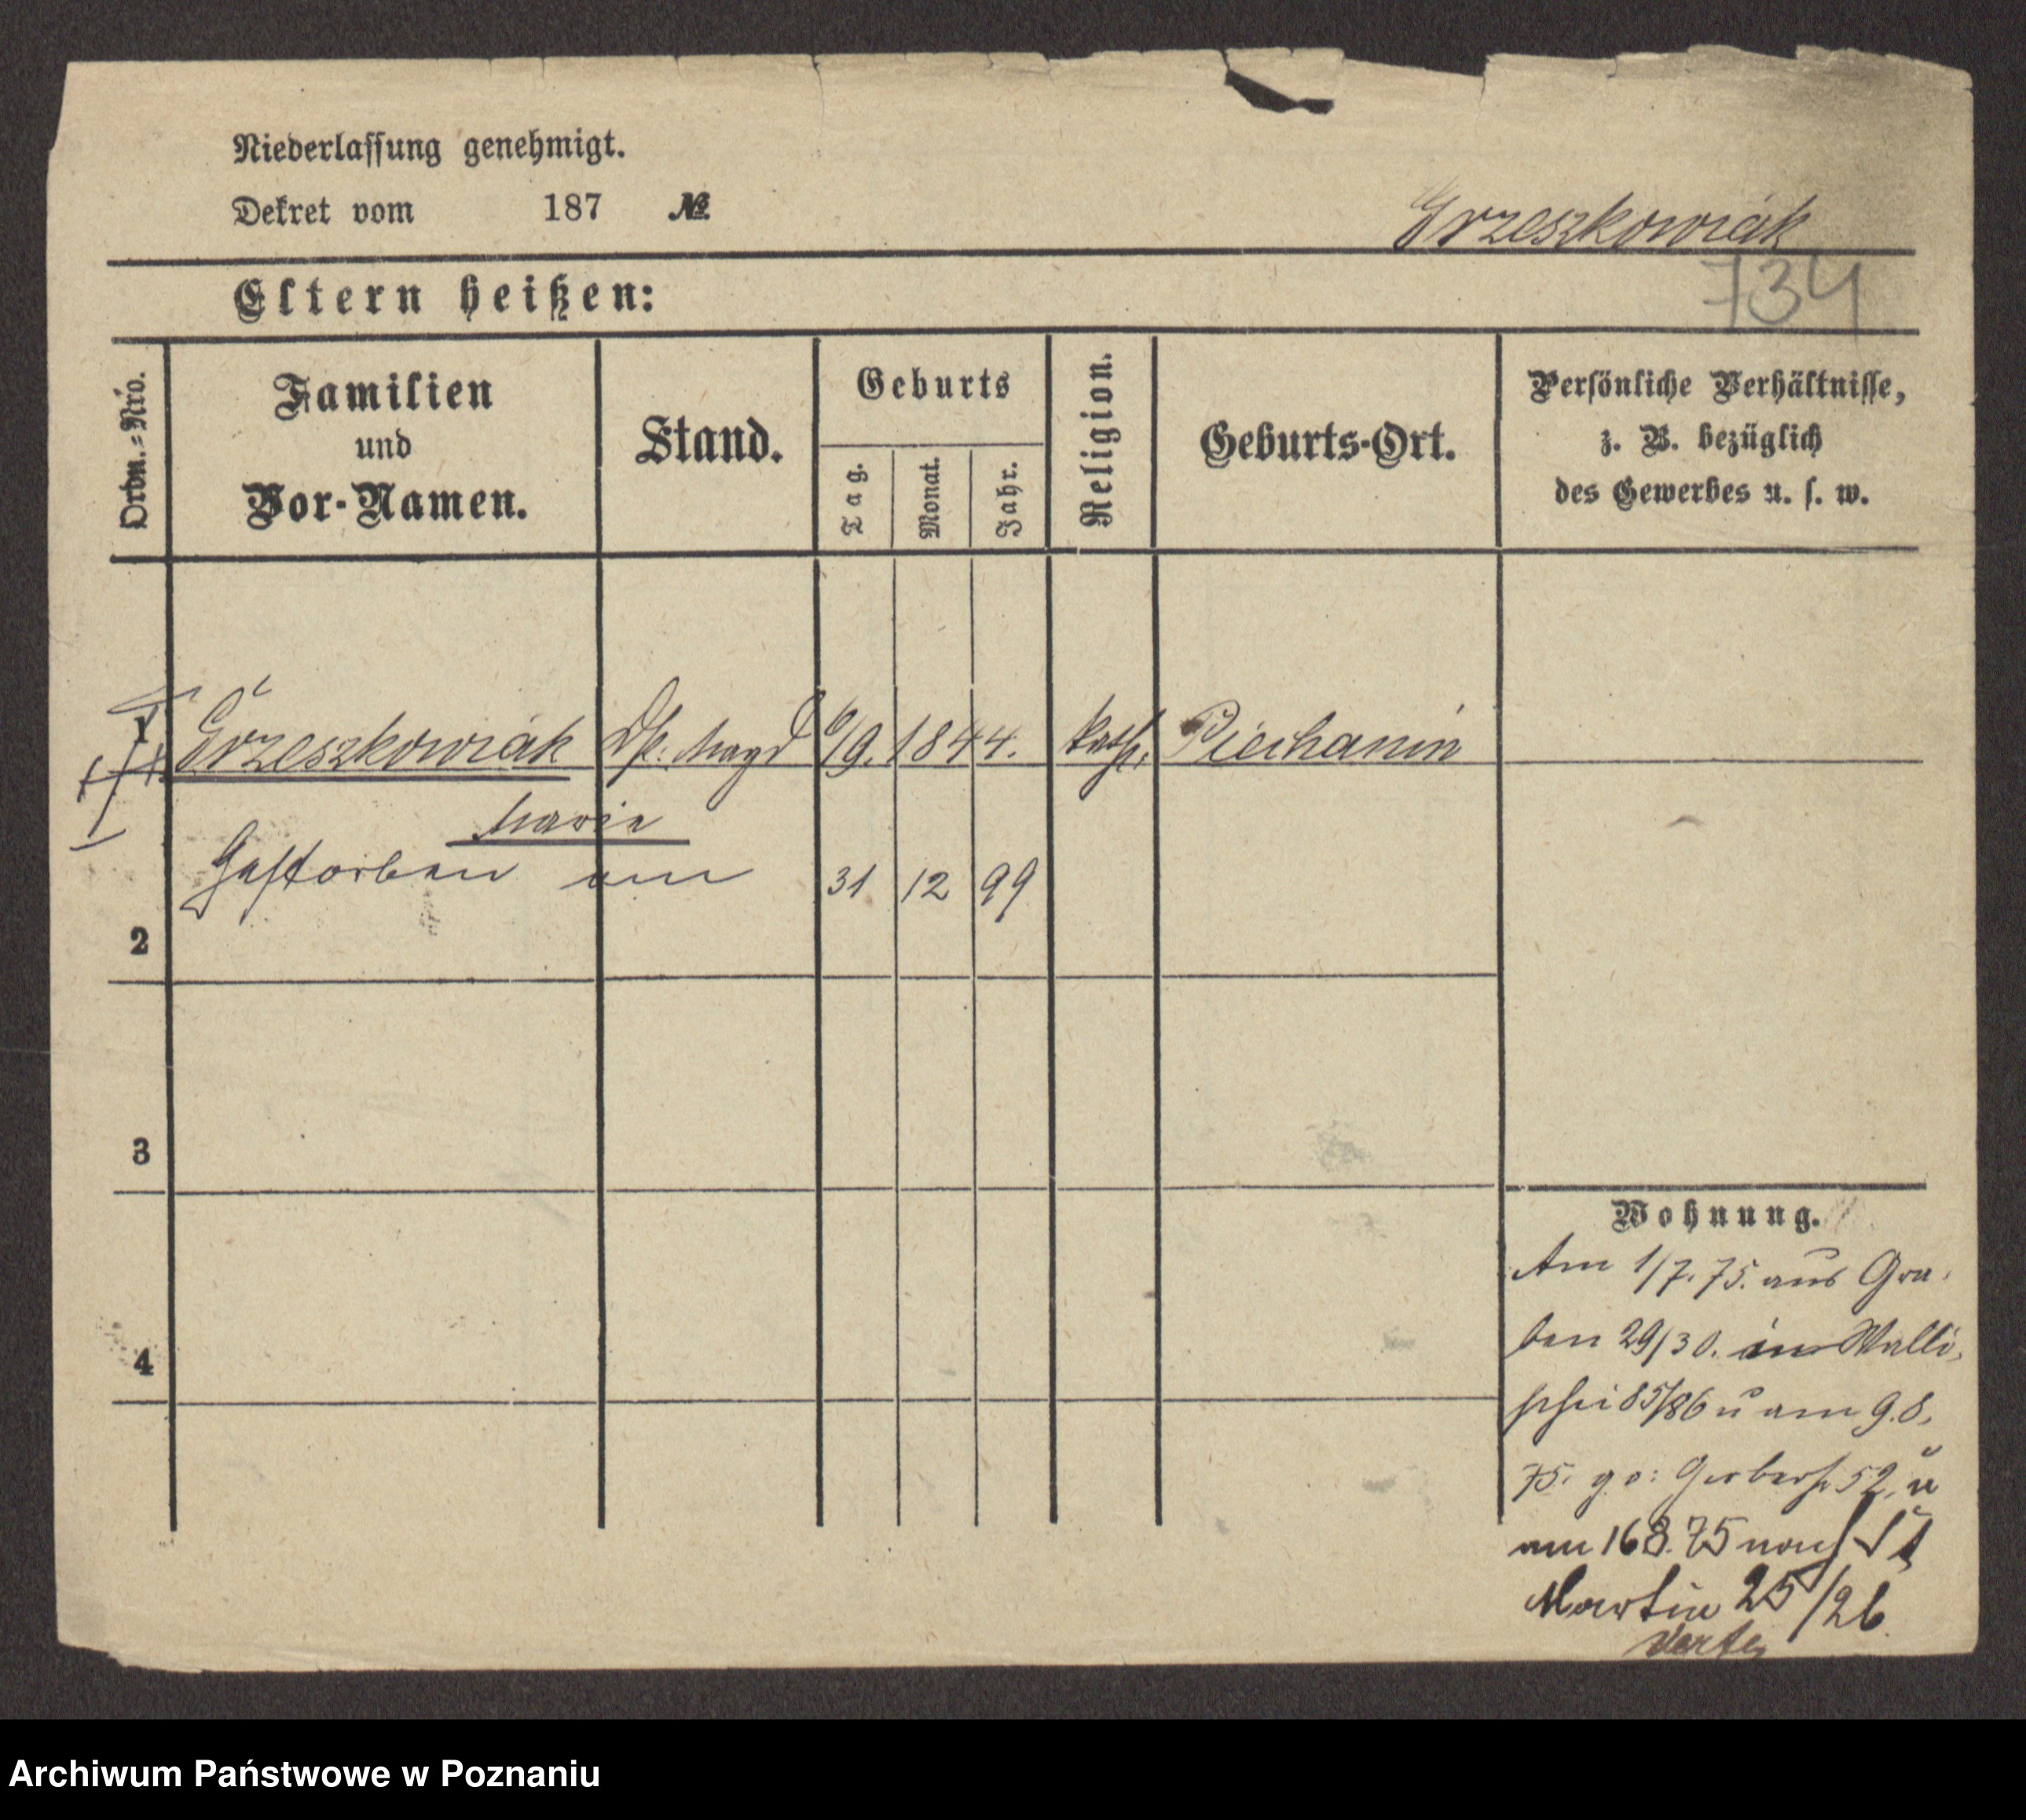 Niederlassung genehmigt.
Dekret vom 187 №
Grzeszkowiak
734
Eltern heißen:
Ordn.=Nro.
Familien
und
Vor-Namen.
Stand.
Geburts
Tag.
Monat.
Jahr.
Religion.
Geburts-Ort.
Persönliche Verhältnisse,
z. B. bezüglich
des Gewerbes u. s. w.
1 Grzeszkowiak Magd 6/9. 1844. kath. Piechanin
Marie
Gestorben am 31 12 99
2
3
4
Wohnung.
Am 1/7. 75. aus Gra-
ben 29/30. in Walli-
schei 85/86 u am 9.8.
75. Gerberst 52. u
am 16 8. 75 nach St
Martin 25/26
Verte
Archiwum Państwowe w Poznaniu